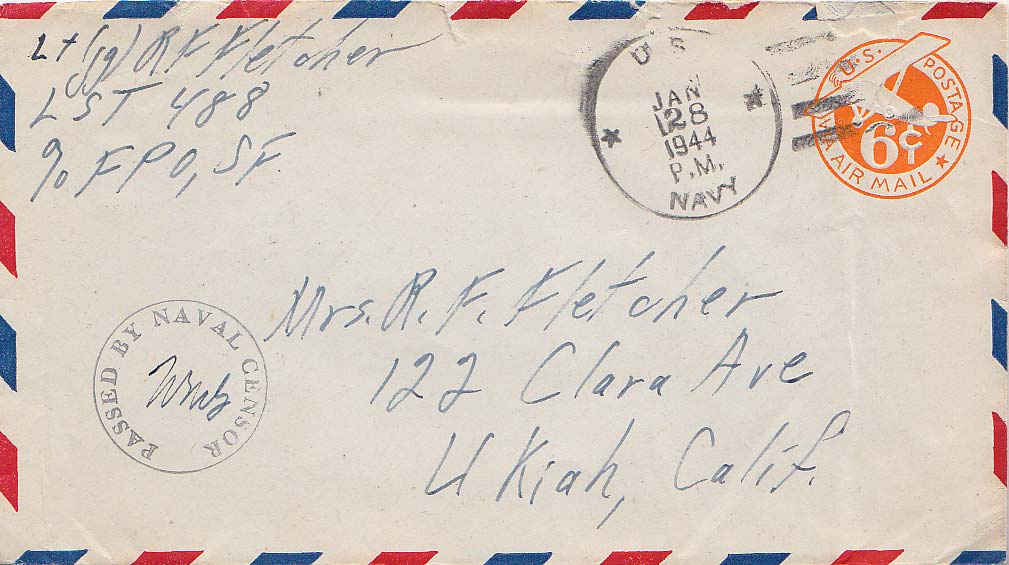 Lt (jg) R F Fletcher
LST 488
% FPO, SF.
U S
JAN
128
1944
P.M.
NAVY
U.S. POSTAGE
VIA AIR MAIL
6¢
Mrs. R. F. Fletcher
122 Clara Ave
Ukiah, Calif.
PASSED BY NAVAL CENSOR